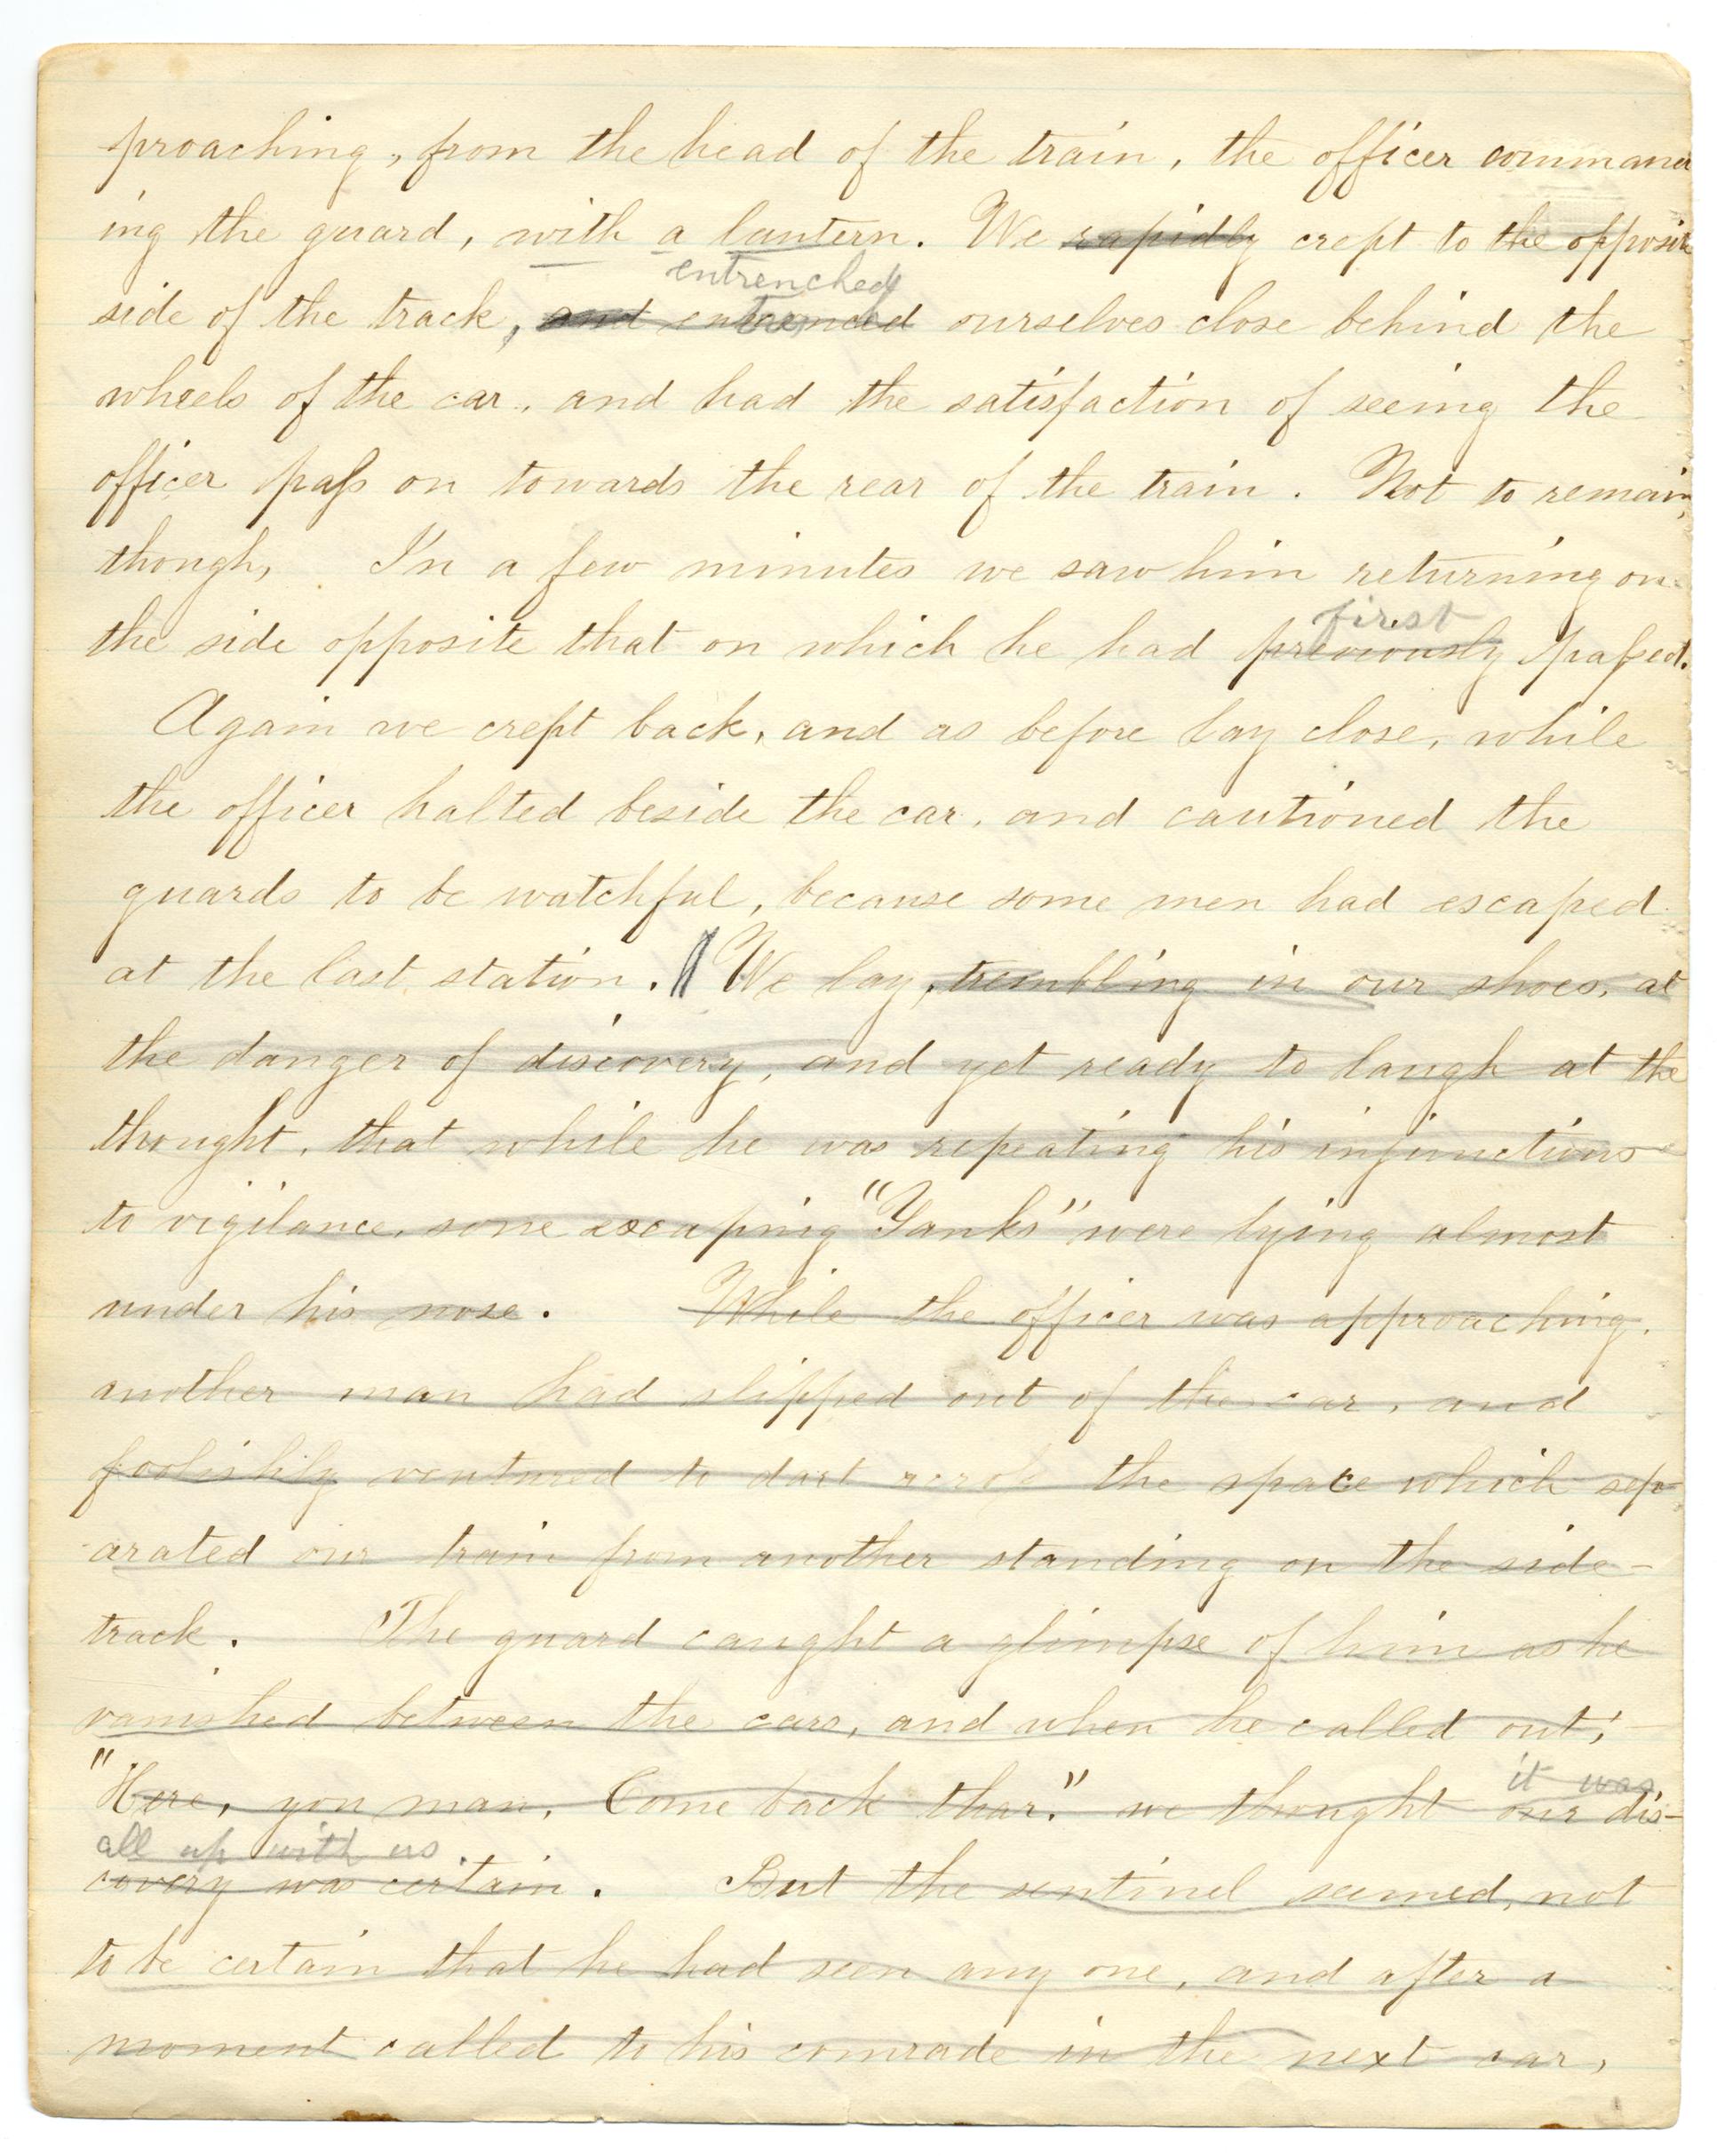 proaching, from the head of the train, the officer command
ing the guard, with a lantern. We rapidly crept to the opposite
entrenched
side of the track, and ourselves close behind the
wheels of the car, and had the satisfaction of seeing the
officer pass on towards the rear of the train. Not to remain,
though, In a few minutes we saw him returning on
first
the side opposite that on which he had previously passed.
Again we crept back, and as before lay close, while
the officer halted beside the car, and cautioned the
guards to be watchful, because some men had escaped
at the last station. We lay, trembling in our shoes, at
the danger of discovery, and yet ready to laugh at the
thought, that while he was repeating his injunctions
to vigilance, some escaping "Yanks" were lying almost
under his nose. While the officer was approaching,
another man had slipped out of the car, and
foolishly ventured to dart across the space which sep-
arated our train from another standing on the side-
track. The guard caught a glimpse of him as he
vanished between the cars, and when he called out;
"Here, you man, Come back thar." we thought our dis-
it was
all up with us.
covery was certain. But the sentinel seemed, not
to be certain that he had seen any one, and after a
moment called to his comrade in the next car,